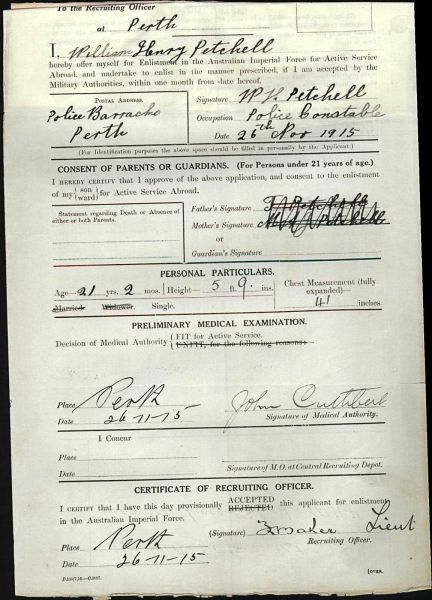 To the Recruiting Officer
at Perth
I, William Henry Petchell
hereby offer myself for Enlistment in the Australian Imperial Force for Active Service
Abroad, and undertake to enlist in the manner prescribed, if I am accepted by the
Military Authorities, within one month from date hereof.
POSTAL ADDRESS.
Police Barracks
Perth
Signature W H Petchell
Occupation Police Constable
Date 26th Nov 1915
(For Identification purposes the above space should be filled in personally by the Applicant.)
CONSENT OF PARENTS OR GUARDIANS. (For Persons under 21 years of age.)
I HEREBY CERTIFY that I approve of the above application, and consent to the enlistment
of my (son / ward) for Active Service Abroad.
Statement regarding Death or Absence of
either or both Parents.
Father's Signature
Mother's Signature
or
Guardian's Signature
PERSONAL PARTICULARS.
Age— 21 yrs. 2 mos. Height— 5 ft. 9 ins. Chest Measurement (fully
expanded)—
41 inches.
Married. Widower. Single.
PRELIMINARY MEDICAL EXAMINATION.
Decision of Medical Authority FIT for Active Service.
UNFIT, for the following reasons
Place Perth
Date 26-11-15
John Cuthbert
Signature of Medical Authority.
I Concur
Place
Date
Signature of M.O. at Central Recruiting Depot.
CERTIFICATE OF RECRUITING OFFICER.
I CERTIFY that I have this day provisionally ACCEPTED / REJECTED this applicant for enlistment
in the Australian Imperial Force.
(Signature) Lieut
Recruiting Officer.
Place Perth
Date 26-11-15
[OVER.